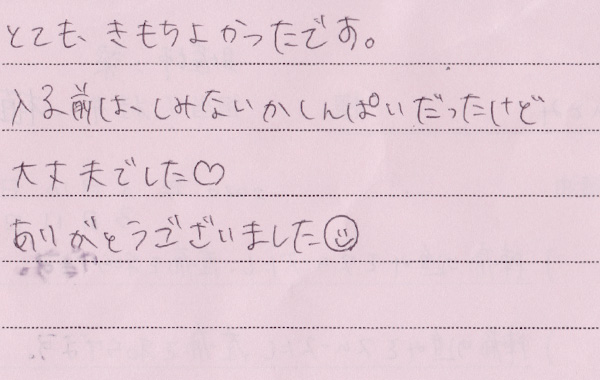 とても、きもちよかったです。
入る前は、しみないかしんぱいだったけど
大丈夫でした♡
ありがとうございました☺